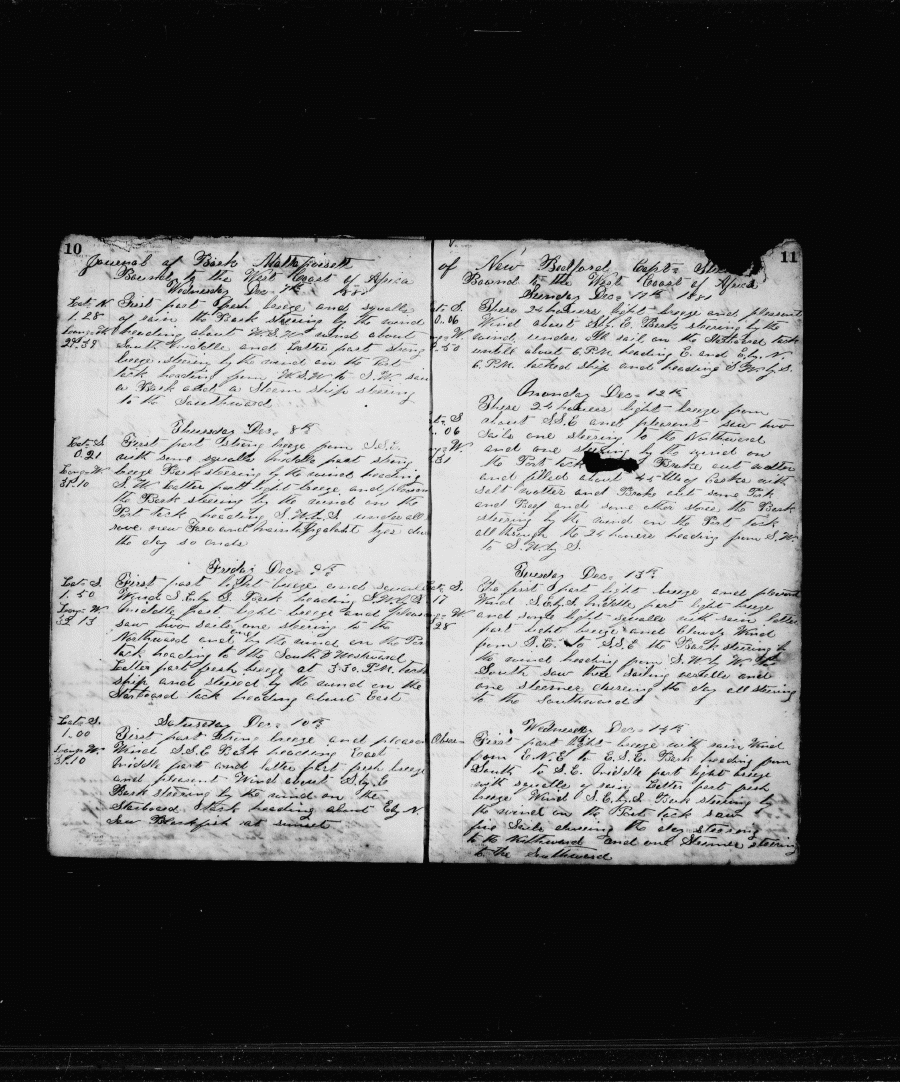 10
Journal of Bark Mattapoisett
Bound to the West Coast of Africa
Wednesday Dec. 7th 1881
Lat. N
1.28
Long. W
29.39
First part fresh breeze and squalls
of rain the Bark steering by the wind
heading about W.S.W. wind about
South Middle and Latter part strong
breeze steering by the wind on the Port
tack heading from W.S.W. to S.W. saw
a Bark and a Steam ship steering
to the Southward
Thursday Dec. 8th
Lat. S
0.21
Long. W
31.10
First part strong breeze from S.S.E.
with some squalls middle part strong
breeze Bark steering by the wind heading
S.W. Latter part light breeze and pleasant
the Bark steering by the wind on the
Port tack heading S.W. by S. under all
rove new Fore and main Topgallant tyes
the day so ends
Friday Dec. 9th
Lat. S.
1.50
Long. W.
32.13
First part light breeze and several
Wind S.E. by S. Bark heading S.W. by S
Middle part light breeze and pleasant
saw two sails one steering to the
Northward and one by the wind on the Port
tack heading to the South & Westward
Latter part fresh breeze at 3.30. P.M. tack
ship and steered by the wind on the
Starboard tack heading about East
Saturday Dec. 10th
Lat. S.
1.00
Long. W.
31.10
First part strong breeze and pleasant
Wind S.S.E. Bark heading East
Middle part and latter part fresh breeze
and pleasant Wind about S. by E.
Bark steering by the wind on the
Starboard tack heading about E. by N.
Saw Blackfish at sunset
11
of New Bedford Capt.
Bound to the West Coast of Africa
Sunday Dec. 11th 1881
Lat. S.
0.06
W.
.50
These 24 houers light breeze and pleasent
Wind about S. by E. Bark steering by the
wind under all sail on the Starboard tack
untill about 6 P.M. heading E. and E. by N.
6. P.M. tacked ship and heading S.W. by S.
Monday Dec. 12th
Lat. S
.06
W.
31
These 24 houers light breeze from
about S.S.E and pleasent saw two
sails one steering to the Northward
and one steering by the wind on
the Port tack Broke out watter
and filled about 45 bbls of casks with
salt watter and Broke out some Pork
and Beef and some other stores the Bark
steering by the wind on the Port tack
all through the 24 houers heading from S.W.
to S.W. by S.
Tuesday Dec. 13th
Lat. S.
17
W.
28
The first part light breeze and pleasent
Wind S.E. by S. Middle part light breeze
and some light squalls with rain latter
part light breeze and cloudy Wind
from S.E. to S.S.E. the Bark steering by
the wind heading from S.W. by W. to
South saw three sailing vessels and
one steamer dureing the day all steering
to the Southward
Wednesday Dec. 14th
Obser.
First part light breeze with rain Wind
from E.N.E. to E.S.E. Bark heading from
South to S.E. Middle part light breeze
with squalls of rain Latter part fresh
breeze Wind S.E. by S. Bark steering by
the wind on the Port tack saw
five Sails dureing the day steering
to the Northward and one Steamer steering
to the Southward